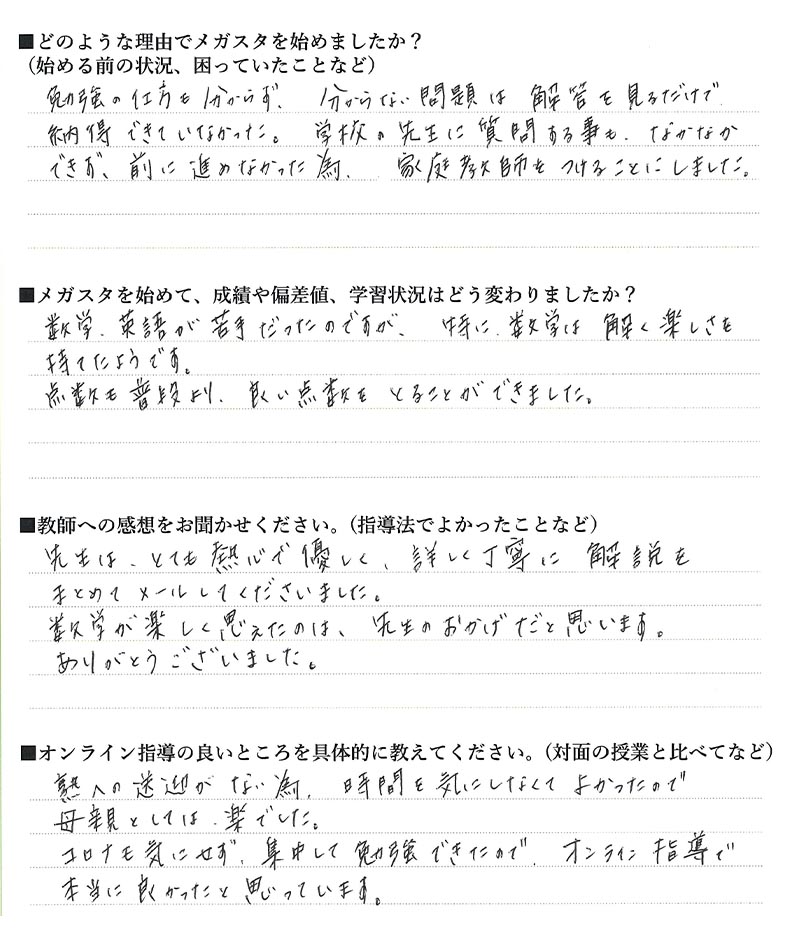 ■どのような理由でメガスタを始めましたか？
（始める前の状況、困っていたことなど）
勉強の仕方も分からず、分からない問題は解答を見るだけで
納得できていなかった。学校の先生に質問する事も、なかなか
できず、前に進めなかった為、家庭教師をつけることにしました。
■メガスタを始めて、成績や偏差値、学習状況はどう変わりましたか？
数学、英語が苦手だったのですが、特に、数学は解く楽しさを
持てたようです。
点数も普段より、良い点数をとることができました。
■教師への感想をお聞かせください。（指導法でよかったことなど）
先生は、とても熱心で優しく、詳しく丁寧に解説を
まとめてメールしてくださいました。
数学が楽しく思えたのは、先生のおかげだと思います。
ありがとうございました。
■オンライン指導の良いところを具体的に教えてください。（対面の授業と比べてなど）
塾への送迎がない為、時間を気にしなくてよかったので
母親としては、楽でした。
コロナも気にせず、集中して勉強できたので、オンライン指導で
本当に良かったと思っています。